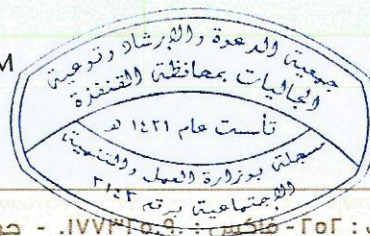 M
جمعية الدعوة والإرشاد وتوعية
الجاليات بمحافظة القنفذة
تأسست عام ١٤٢١ هـ
مسجلة بوزارة العمل والتنمية
الاجتماعية برقم ٣١٤٢